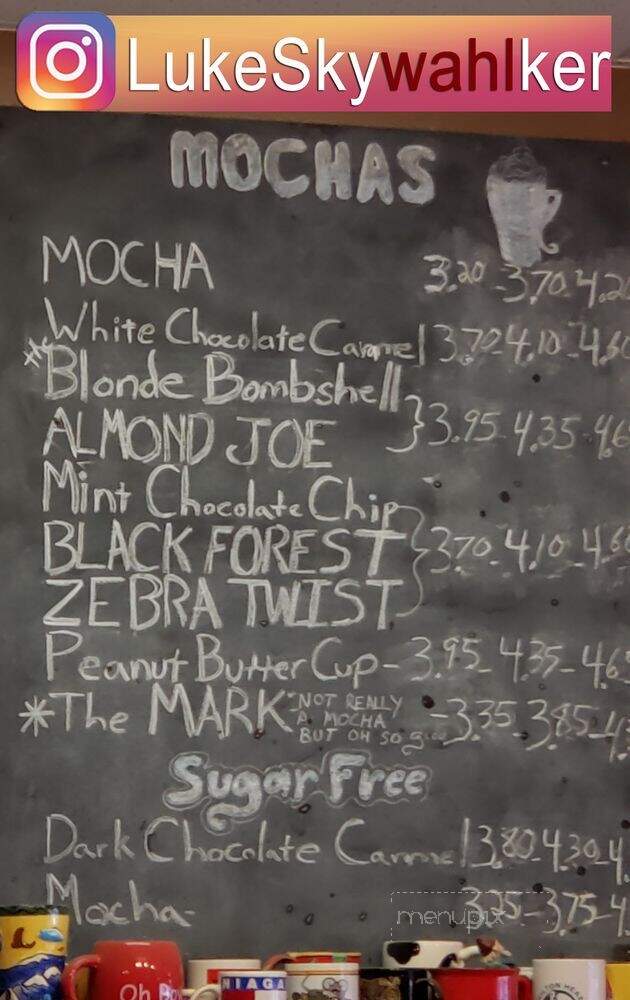 LukeSkywahlker
MOCHAS
MOCHA 3.20 - 3.70 4.20
White Chocolate Caramel 3.70 - 4.10 - 4.60
Blonde Bombshell
ALMOND JOE 3.95 - 4.35 - 4.6
Mint Chocolate Chip
BLACK FOREST 3.70 - 4.10 - 4.60
ZEBRA TWIST
Peanut Butter Cup - 3.95 - 4.35 - 4.65
*The MARK - 3.35 - 3.85 - 4.3
NOT REALLY
A MOCHA
BUT OH SO
Sugar Free
Dark Chocolate Caramel 3.80 - 4.30 - 4.
Mocha - 3.25 - 3.75 - 4.
menupix
Oh Bo
NIAGA
TON HEA